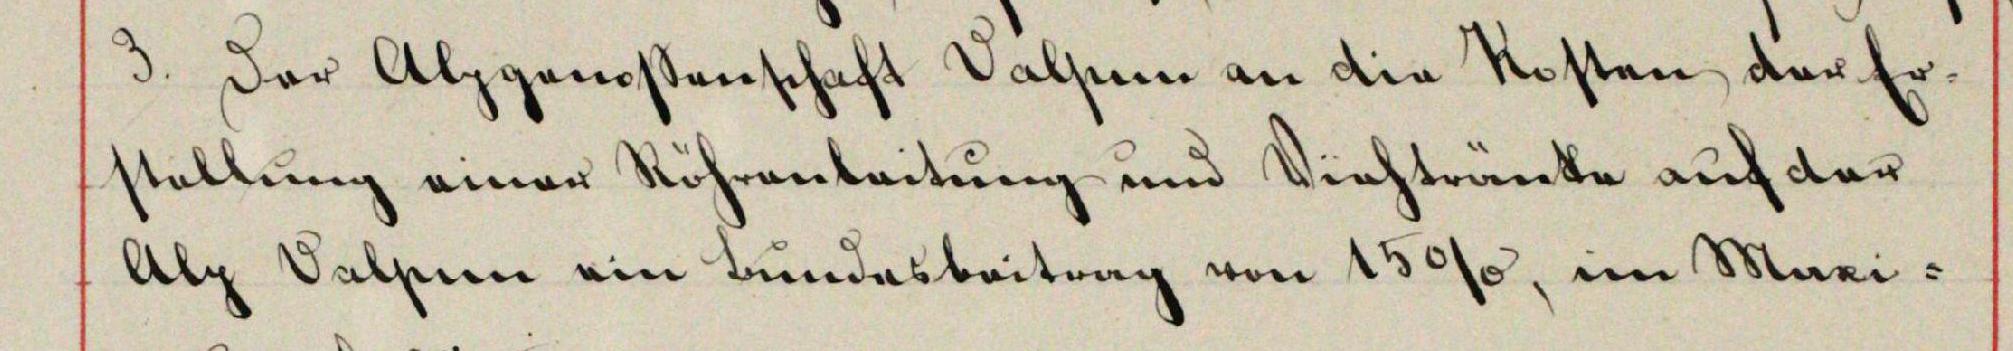 3. Der Alpgenossenschaft Valpun an die Kosten der Er-
stellung einer Röhrenleitung und Viehtränke auf der
Alp Valpun ein Bundesbeitrag von 15%, im Maxi-